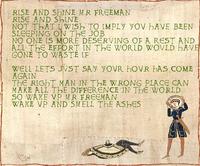 RISE AND SHINE MR FREEMAN
RISE AND SHINE
NOT THAT I WISH TO IMPLY YOU HAVE BEEN
SLEEPING ON THE JOB
NO ONE IS MORE DESERVING OF A REST AND
ALL THE EFFORT IN THE WORLD WOULD HAVE
GONE TO WASTE IF
WELL LETS JUST SAY YOUR HOUR HAS COME
AGAIN
THE RIGHT MAN IN THE WRONG PLACE CAN
MAKE ALL THE DIFFERENCE IN THE WORLD
SO WAKE UP MR FREEMAN
WAKE UP AND SMELL THE ASHES